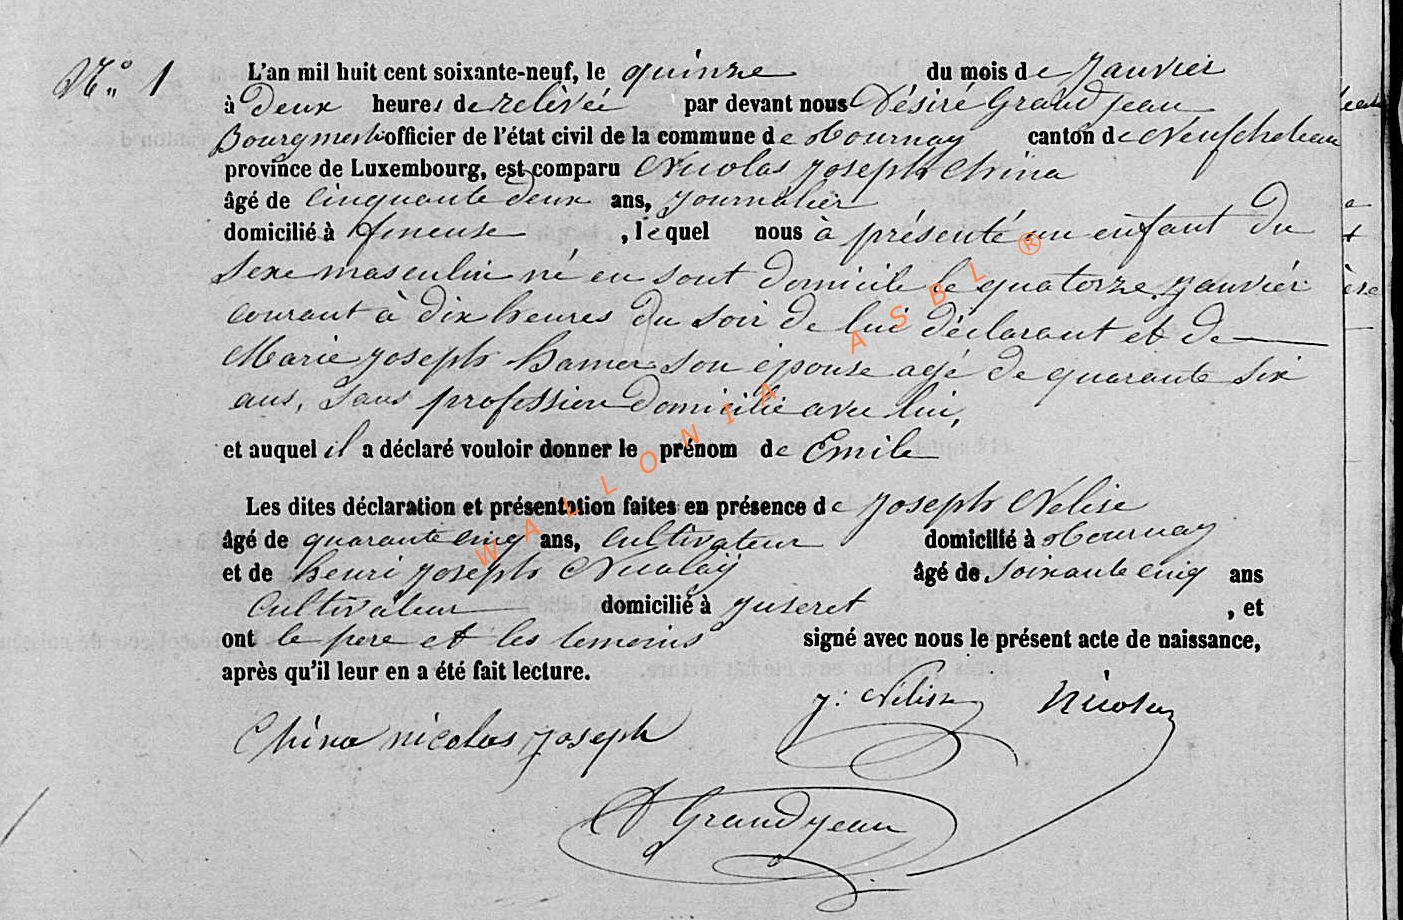 N° 1
L'an mil huit cent soixante-neuf, le quinze du mois de Janvier
à Deux heures de relévée par devant nous Désiré Grandjean
Bourgmestre officier de l'état civil de la commune de Tournay canton de Neufchateau
province de Luxembourg, est comparu Nicolas Joseph China
âgé de cinquante deux ans, journalier
domicilié à fineuse, lequel nous à présenté un enfant du
sexe masculin né en sont domicile le quatorze janvier
courant à dix heures du soir de lui déclarant et de
Marie Joseph hamer son épouse agé de quarante six
ans, sans profession domicilié avec lui,
et auquel il a déclaré vouloir donner le prénom de Emile
Les dites déclaration et présentation faites en présence de Joseph Nelise
âgé de quarante cinq ans, Cultivateur domicilié à Tournay
et de henri Joseph Nicolaÿ âgé de soixante cinq ans
Cultivateur domicilié à Juseret, et
ont le pere et les temoins signé avec nous le présent acte de naissance,
après qu'il leur en a été fait lecture.
J: Nelisse Nicolay
China nicolas joseph
D Grandjean
WALLONIA ASBL ®